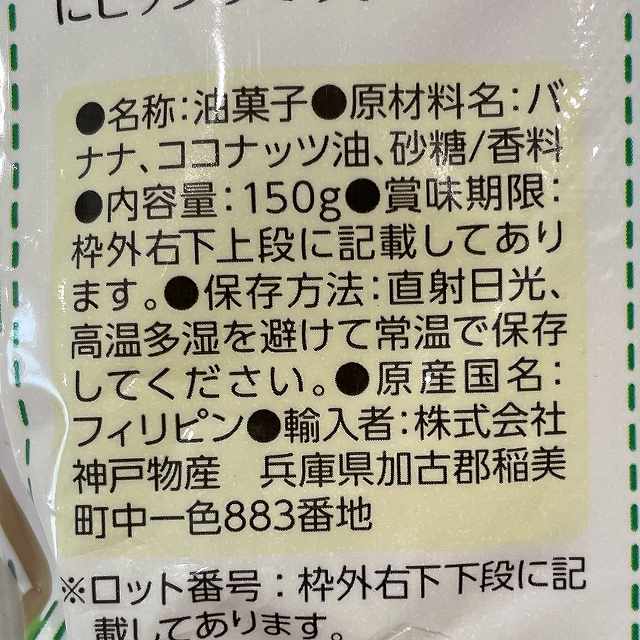 ●名称：油菓子●原材料名：バ
ナナ、ココナッツ油、砂糖/香料
●内容量：150g●賞味期限：
枠外右下上段に記載してあり
ます。●保存方法：直射日光、
高温多湿を避けて常温で保存
してください。●原産国名：
フィリピン●輸入者：株式会社
神戸物産　兵庫県加古郡稲美
町中一色883番地
※ロット番号：枠外右下下段に記
載してあります。